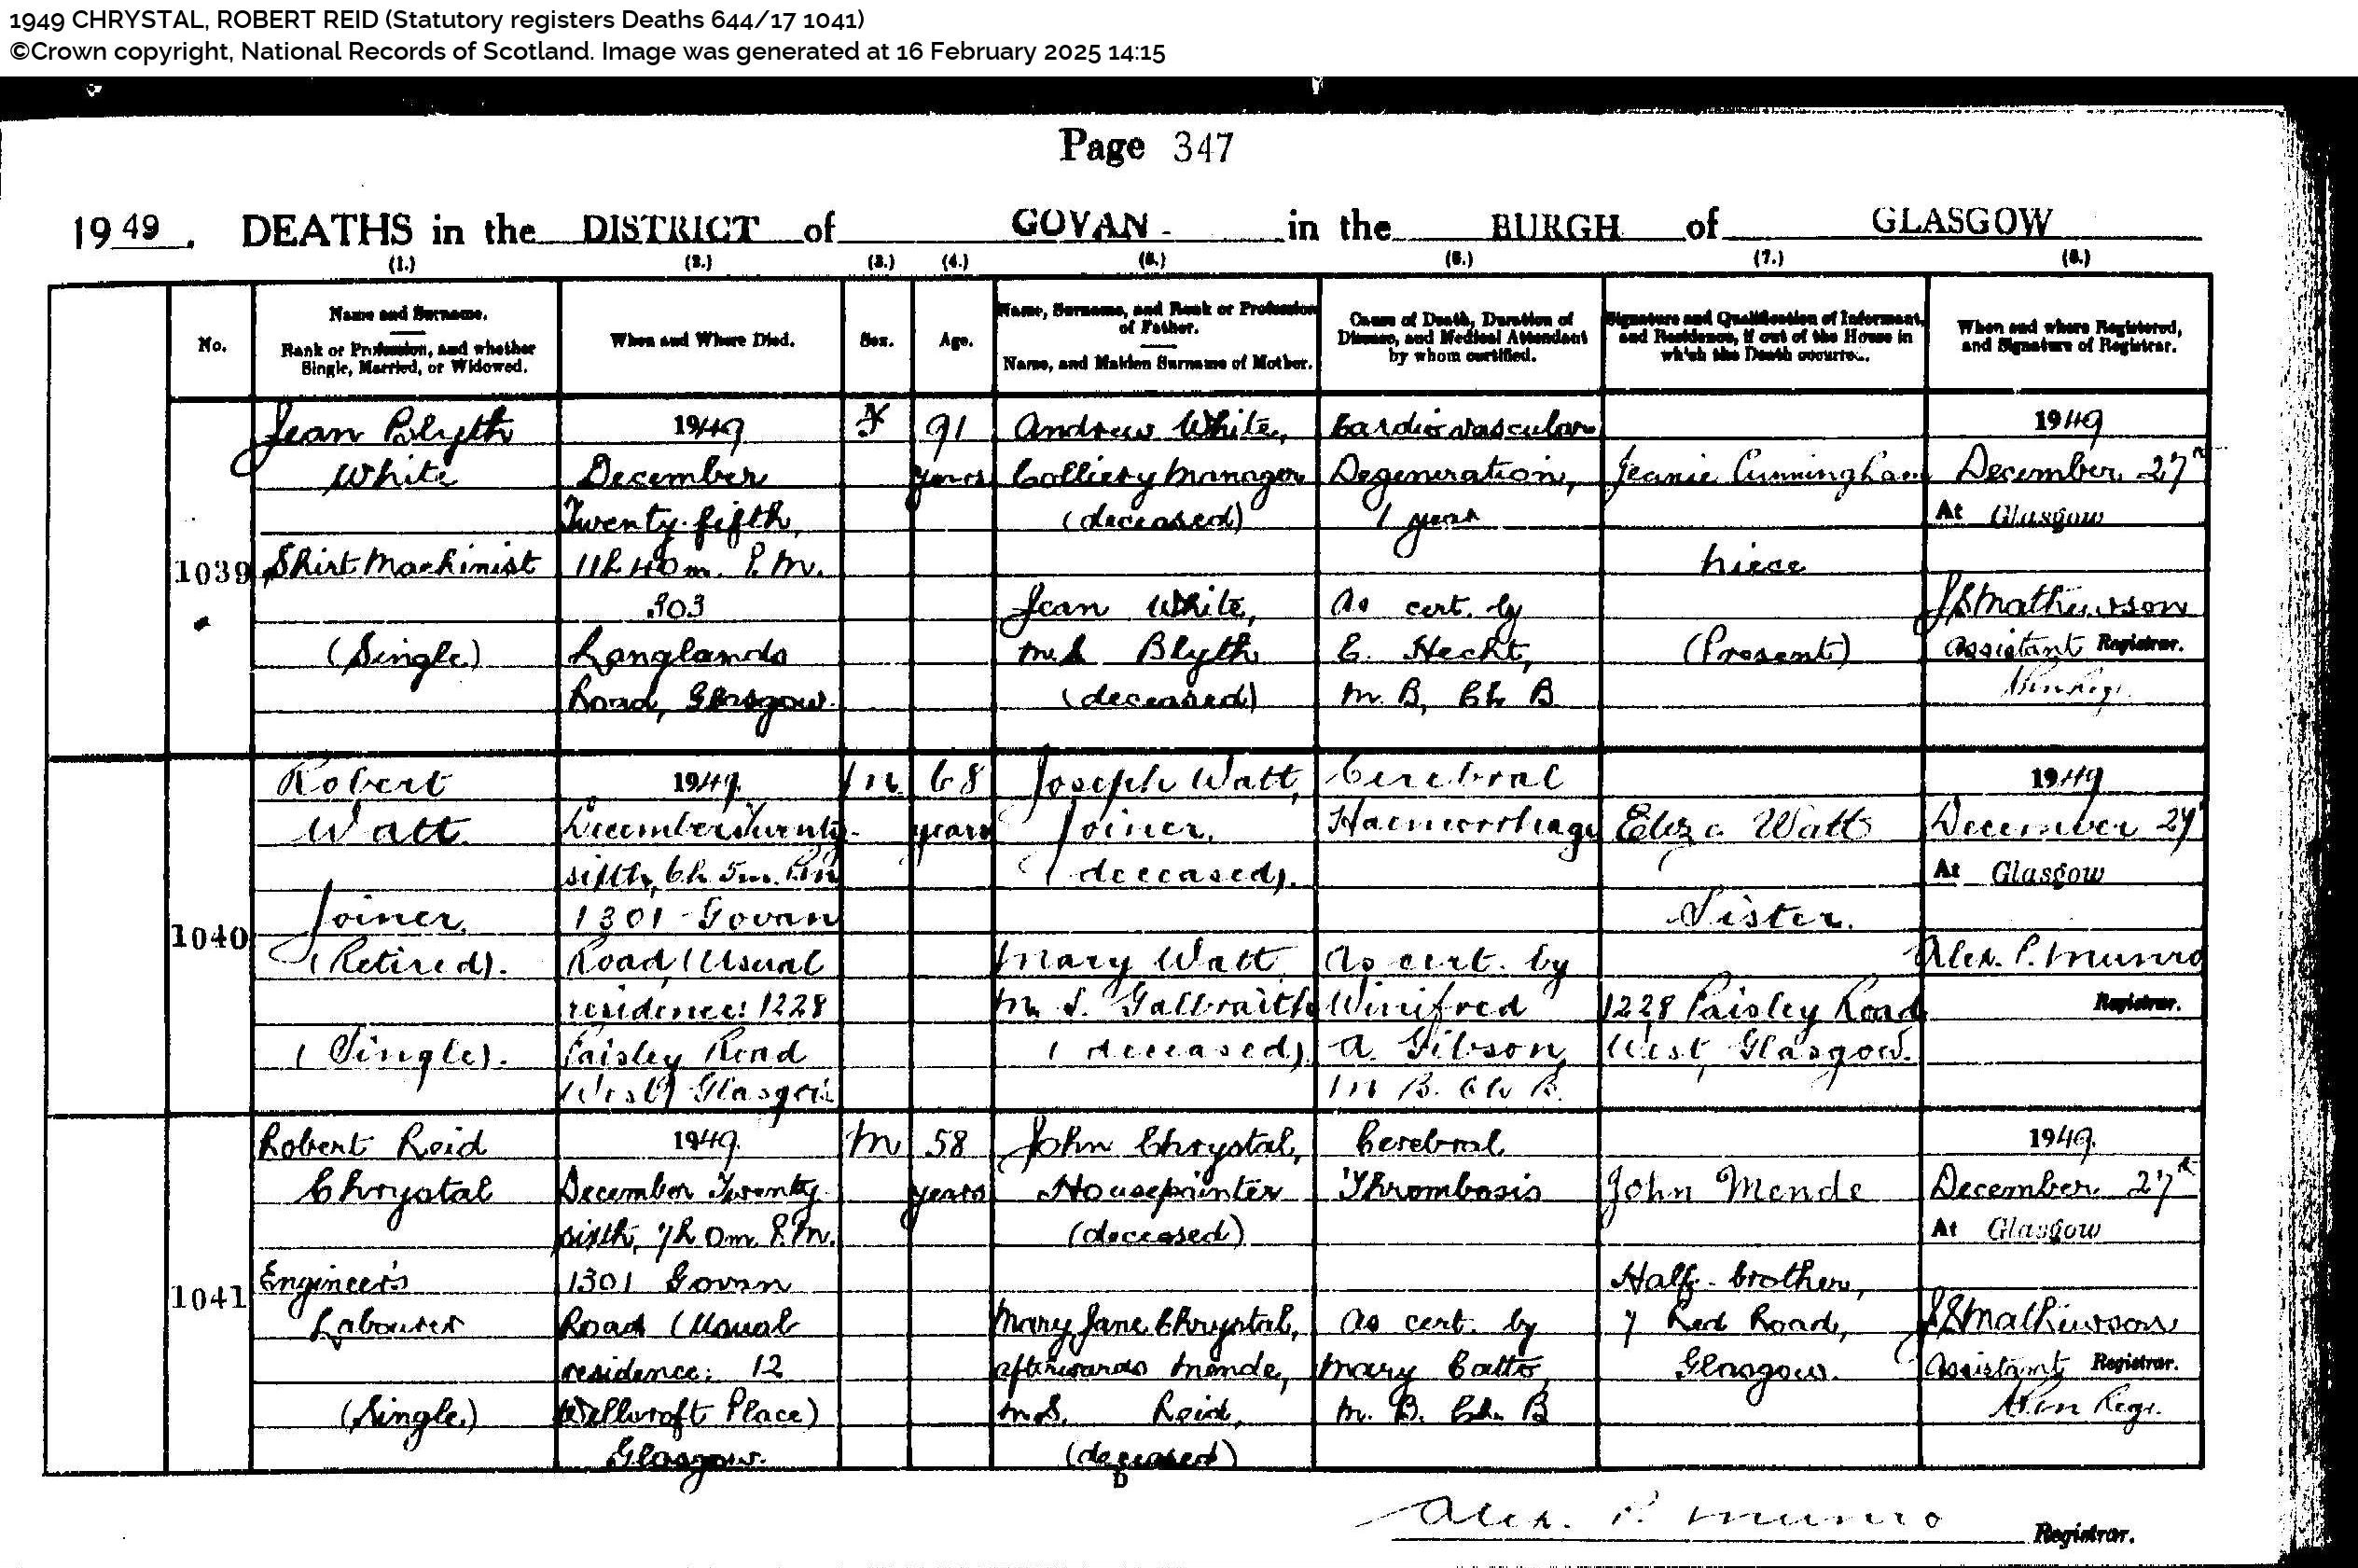 1949 CHRYSTAL, ROBERT REID (Statutory registers Deaths 644/17 1041)
©Crown copyright, National Records of Scotland. Image was generated at 16 February 2025 14:15
Page 347
1949. DEATHS in the DISTRICT of GOVAN in the BURGH of GLASGOW
(1.) (2.) (3.) (4.) (5.) (6.) (7.) (8.)
No.
Name and Surname.
Rank or Profession, and whether
Single, Married, or Widowed.
When and Where Died.
Sex.
Age.
Name, Surname, and Rank or Profession
of Father.
Name, and Maiden Surname of Mother.
Cause of Death, Duration of
Disease, and Medical Attendant
by whom certified.
Signature and Qualification of Informant,
and Residence, if out of the House in
which the Death occurred.
When and where Registered,
and Signature of Registrar.
1039
Jean Blyth
White
Shirt Machinist
(Single)
1949
December
Twenty-fifth,
11h 40m. P.M.
303
Langlands
Road, Glasgow.
F
91
years
Andrew White,
Colliery Manager
(deceased)
Jean White,
m.s. Blyth
(deceased)
Cardiovascular
Degeneration,
1 year
As cert. by
E. Hecht,
M.B, Ch B
Jeanie Cunningham
Niece
(Present)
1949
December 27th
At Glasgow
J S Mathewson
Assistant Registrar.
1040
Robert
Watt.
Joiner.
(Retired).
(Single).
1949.
December Twenty-
sixth, 6h 5m. P.M
1301 Govan
Road, (Usual
residence: 1228
Paisley Road
West) Glasgow
M
68
years
Joseph Watt,
Joiner.
(deceased).
Mary Watt
M.S. Galbraith
(deceased).
Cerebral
Haemorrhage
As cert. by
Winifred
A. Gibson,
M B. Ch B.
Eliza Watt
Sister.
1228 Paisley Road
West, Glasgow.
1949
December 27th
At Glasgow
Alex. P. Munro
Registrar.
1041
Robert Reid
Chrystal
Engineer's
Labourer
(Single.)
1949.
December Twenty-
sixth, 7h 0m. P.M.
1301 Govan
Road (Usual
residence: 12
Wellcroft Place)
Glasgow.
M
58
years
John Chrystal,
Housepainter
(deceased)
Mary Jane Chrystal,
afterwards Mende,
m.s. Reid,
(deceased)
D
Cerebral
Thrombosis
As cert. by
Mary Catto,
M. B. Ch. B
John Mende
Half-brother,
7 Red Road,
Glasgow.
1949.
December 27th
At Glasgow
J S Mathewson
Assistant Registrar.
Alex. P. Munro
Registrar.